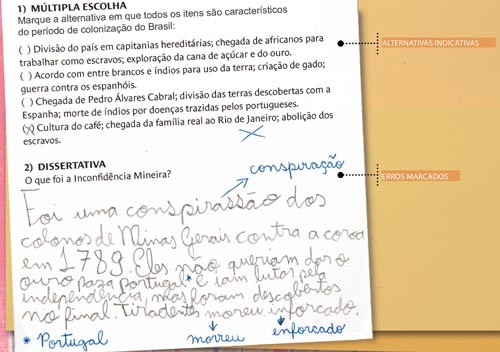 1) MÚLTIPLA ESCOLHA
Marque a alternativa em que todos os itens são característicos
do período de colonização do Brasil:
( ) Divisão do país em capitanias hereditárias; chegada de africanos para
trabalhar como escravos; exploração da cana de açúcar e do ouro.
ALTERNATIVAS INDICATIVAS
( ) Acordo com entre brancos e índios para uso da terra; criação de gado;
guerra contra os espanhóis.
( ) Chegada de Pedro Álvares Cabral; divisão das terras descobertas com a
Espanha; morte de índios por doenças trazidas pelos portugueses.
(x) Cultura do café; chegada da família real ao Rio de Janeiro; abolição dos
escravos.
2) DISSERTATIVA
conspiração
O que foi a Inconfidência Mineira?
ERROS MARCADOS
Foi uma conspirassão dos
colonos de Minas Gerais contra a coroa
em 1789. Eles não queriam dar o
ouro para portugal * e iam lutar pela
independência, mas foram descobertos
no final Tiradentes moreu inforcado.
* Portugal morreu enforcado